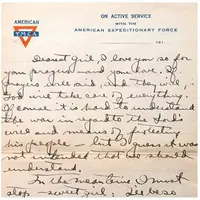 AMERICAN
YMCA
ON ACTIVE SERVICE
WITH THE
AMERICAN EXPEDITIONARY FORCE
191
Dearest Girl, I love you so for
your prayers and you are. If
are said, and they
God will take care of everything.
Of course it is hard to understand
the war in regard to the God's
will and means of protecting
his people - but I guess it was
not intended that we should
understand.
In the meantime I must
stop - sweet girl: